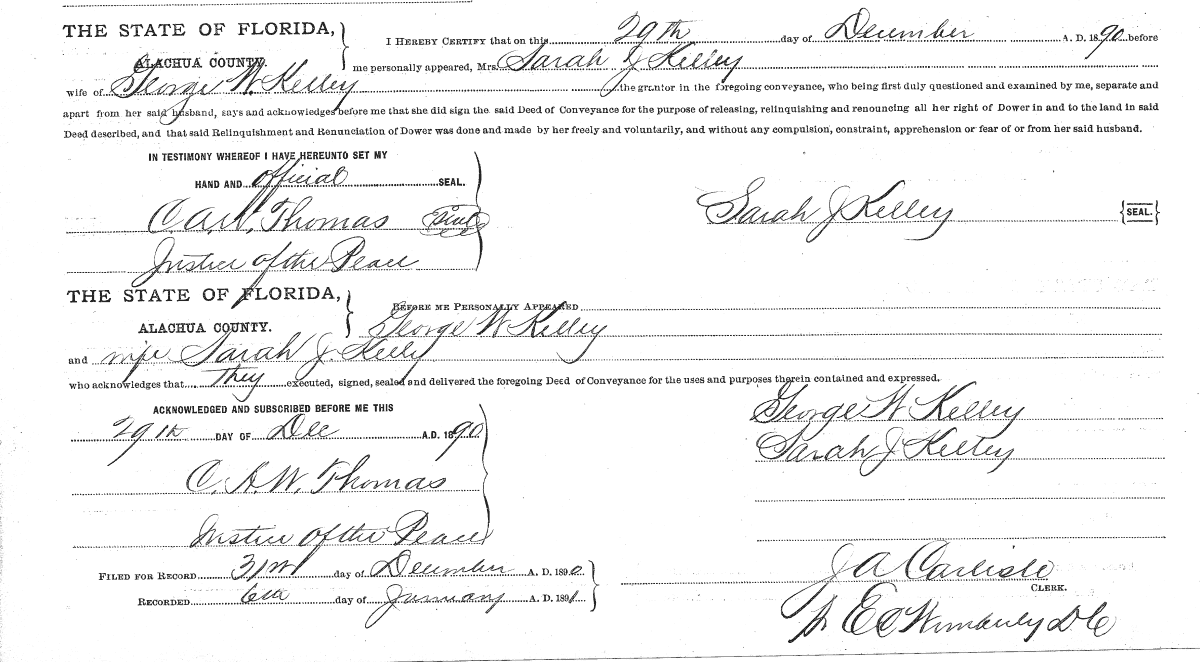 THE STATE OF FLORIDA,
ALACHUA COUNTY.
I HEREBY CERTIFY that on this 29th day of December A. D. 1890 before
me personally appeared, Mrs. Sarah J Kelley
wife of George W. Kelley the grantor in the foregoing conveyance, who being first duly questioned and examined by me, separate and
apart from her said husband, says and acknowledges before me that she did sign the said Deed of Conveyance for the purpose of releasing, relinquishing and renouncing all her right of Dower in and to the land in said
Deed described, and that said Relinquishment and Renunciation of Dower was done and made by her freely and voluntarily, and without any compulsion, constraint, apprehension or fear of or from her said husband.
IN TESTIMONY WHEREOF I HAVE HEREUNTO SET MY
HAND AND official SEAL.
C. A. W. Thomas
Sarah J Kelley {SEAL.}
Justice of the Peace
THE STATE OF FLORIDA,
ALACHUA COUNTY.
BEFORE ME PERSONALLY APPEARED
George W Kelley
and wife Sarah J. Kelly
who acknowledges that They executed, signed, sealed and delivered the foregoing Deed of Conveyance for the uses and purposes therein contained and expressed.
ACKNOWLEDGED AND SUBSCRIBED BEFORE ME THIS
29th DAY OF Dec A.D. 1890
George W Kelley
Sarah J Kelley
C. A. W. Thomas
Justice of the Peace
FILED FOR RECORD 31st day of December A. D. 1890
RECORDED 6th day of January A. D. 1891
J A Carlisle
CLERK.
E C Wimberly D C